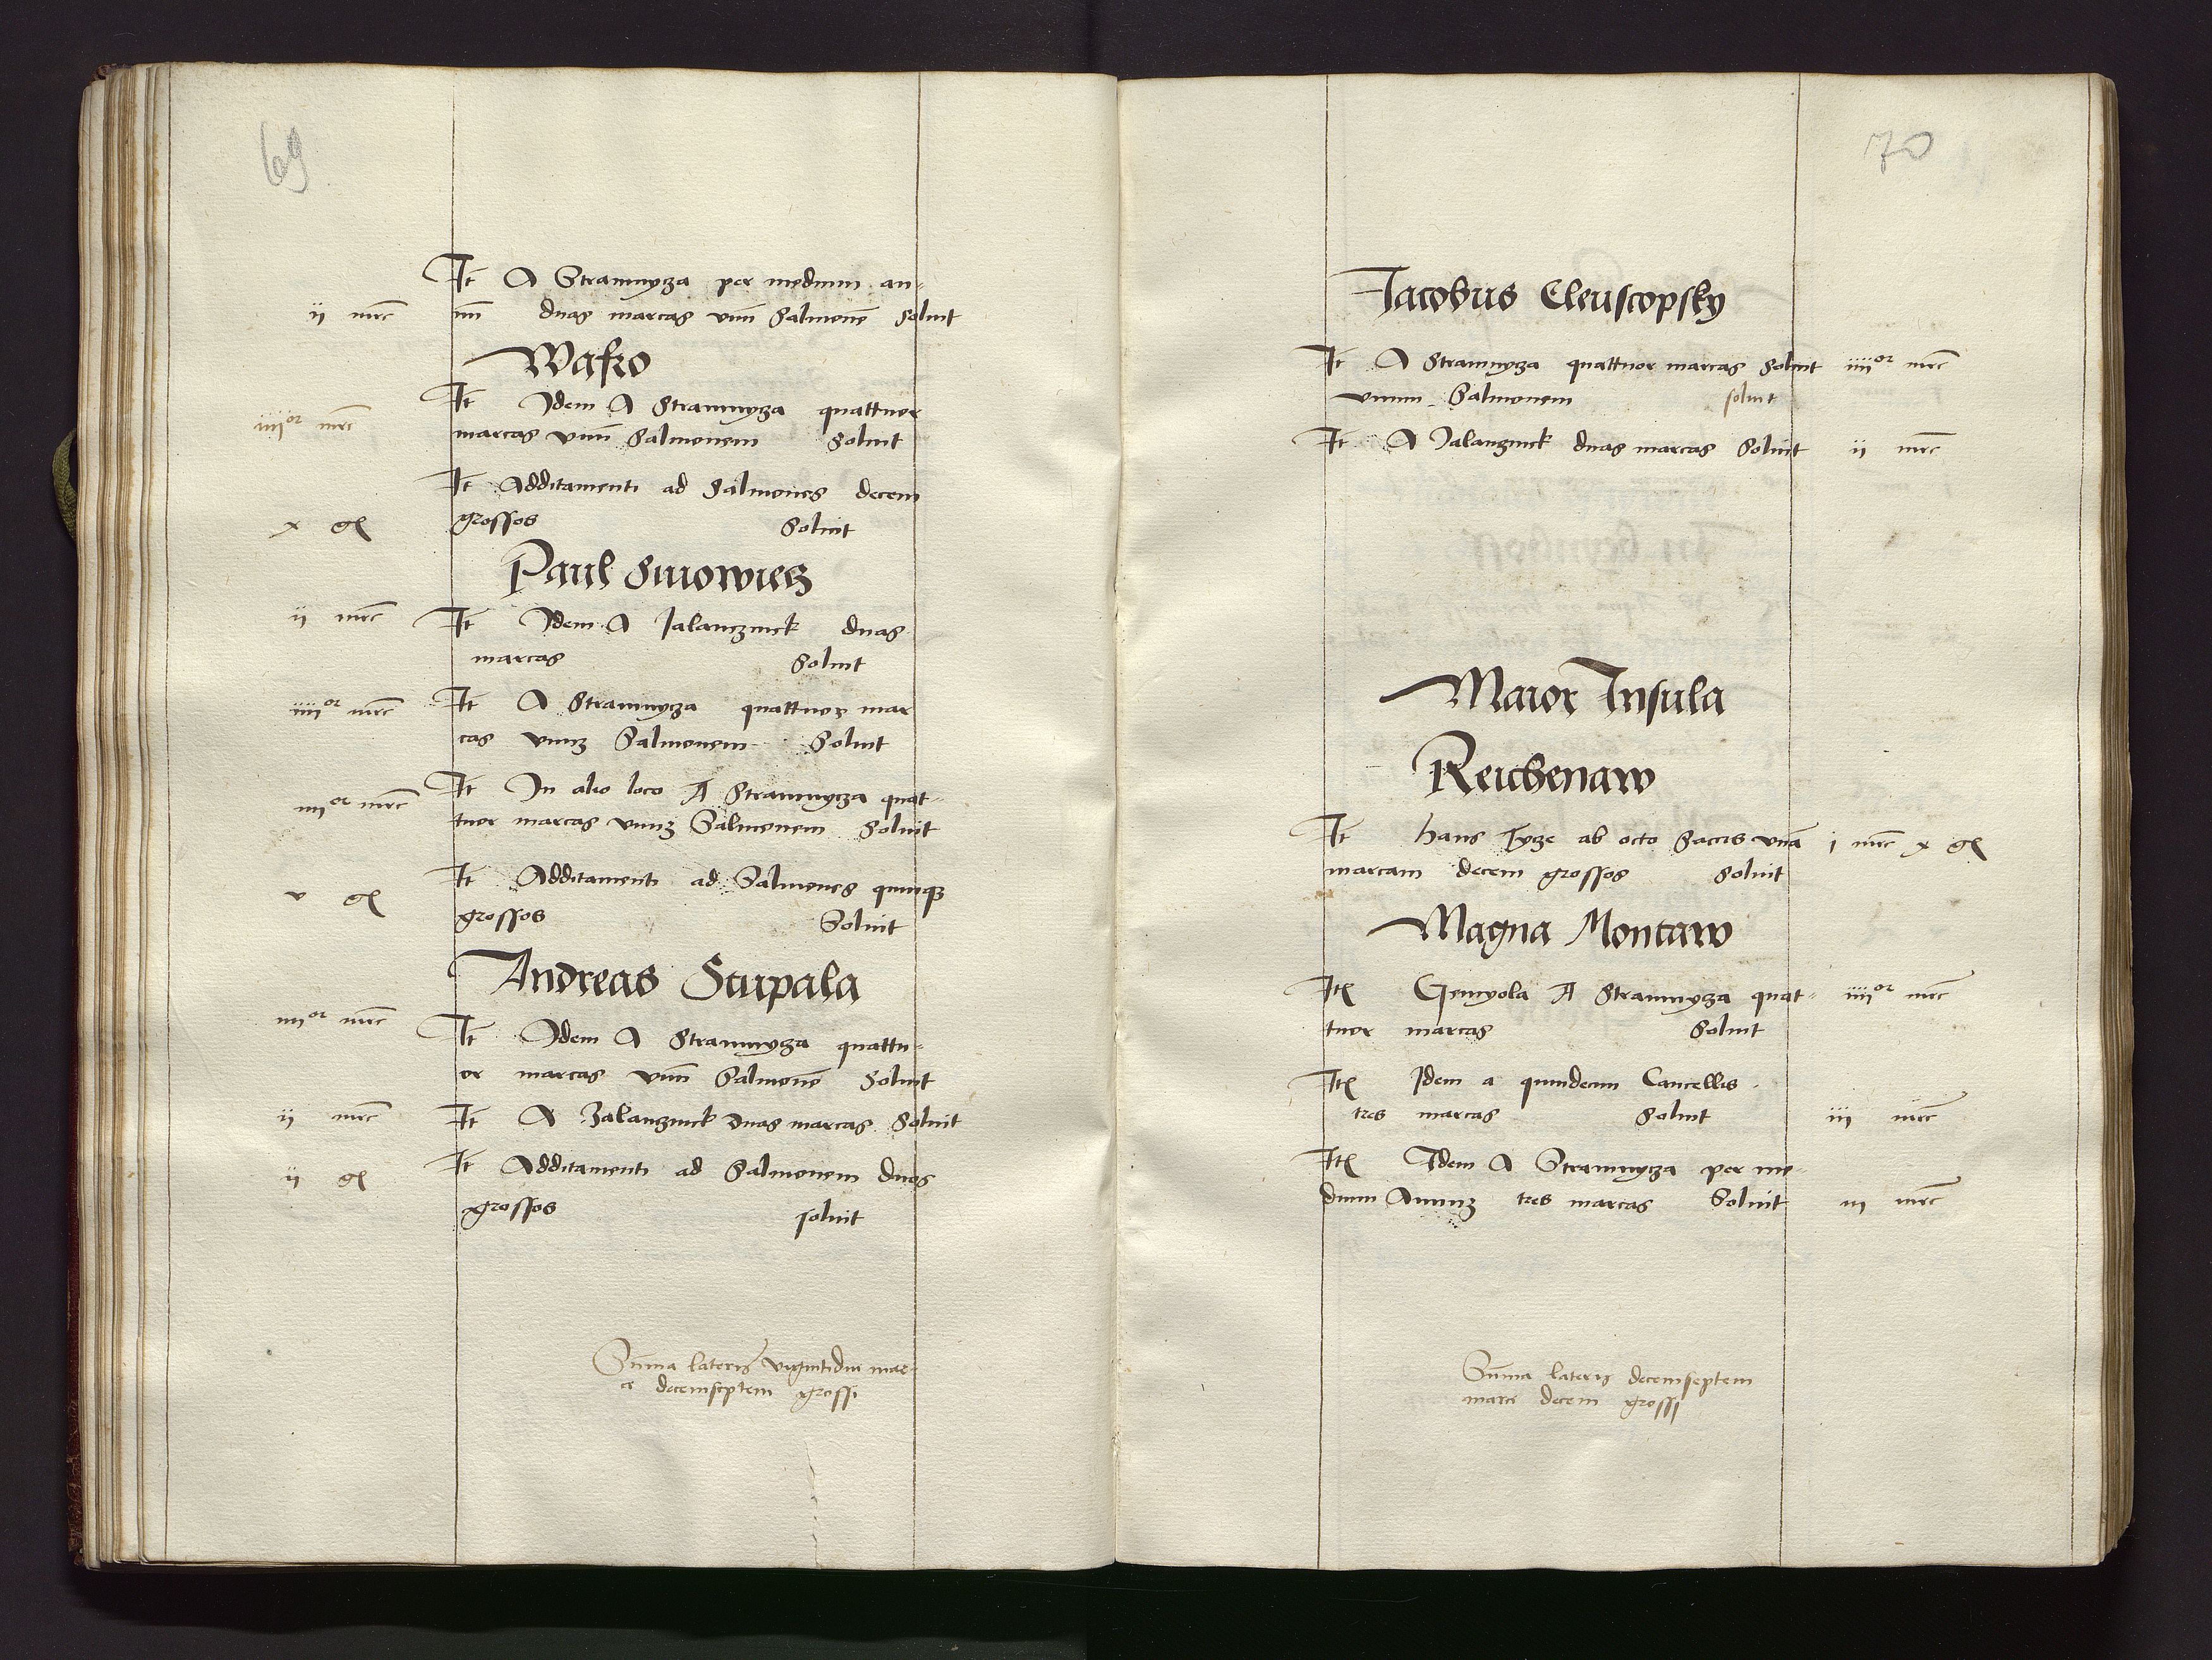 69
It A Stramnycza per medium an-
ii mrc nu duas marcas vnu Salmone Soluit
Wasko
It Idem A Stramnycza quattuor
iiii or mrc marcas vnu Salmonem Soluit
It Additamenti ad Salmones decem
x gr grossos Soluit
Paul Smowicz
ii mrc It Idem A Jalanczinck duas
marcas Soluit
iiii or mrc It A Stramnycza quattuor mar
cas vnuz Salmonem Soluit
iiii or mrc It In alio loco A Stramnycza quat-
tuor marcas vnuz Salmonem Soluit
v gr It Additamenti ad Salmones quinqz
grossos Soluit
Andreas Scupala
iiii or mrc It Idem A Stramnycza quattu-
or marcas vnu Salmone Soluit
ii mrc It A Zalanzinck duas marcas Soluit
ii gr It Additamenti ad Salmonem duos
grossos soluit
Suma lateris vigintidui mar-
ce decemseptem grossi
70
Jacobus Cleuscopsky
It A Stramnycza quattuor marcas Soluit iiii or mrc
vnum Salmonem soluit
It A Jalanzinck duas marcas Soluit ii mrc
Maior Insula
Reichenaw
It hans Tyze ab octo Saccis vna i mrc x gr
marcam decem grossos Soluit
Magna Montaw
Ite Gemyola A Stramnycza quat- iiii or mrc
tuor marcas Soluit
Ite Idem a quindecim Cancellis
tres marcas Soluit iii mrc
Ite Idem A Stramnycza per me-
dium Annuz tres marcas Soluit iii mrc
Suma lateris decemseptem
marce decem grossi